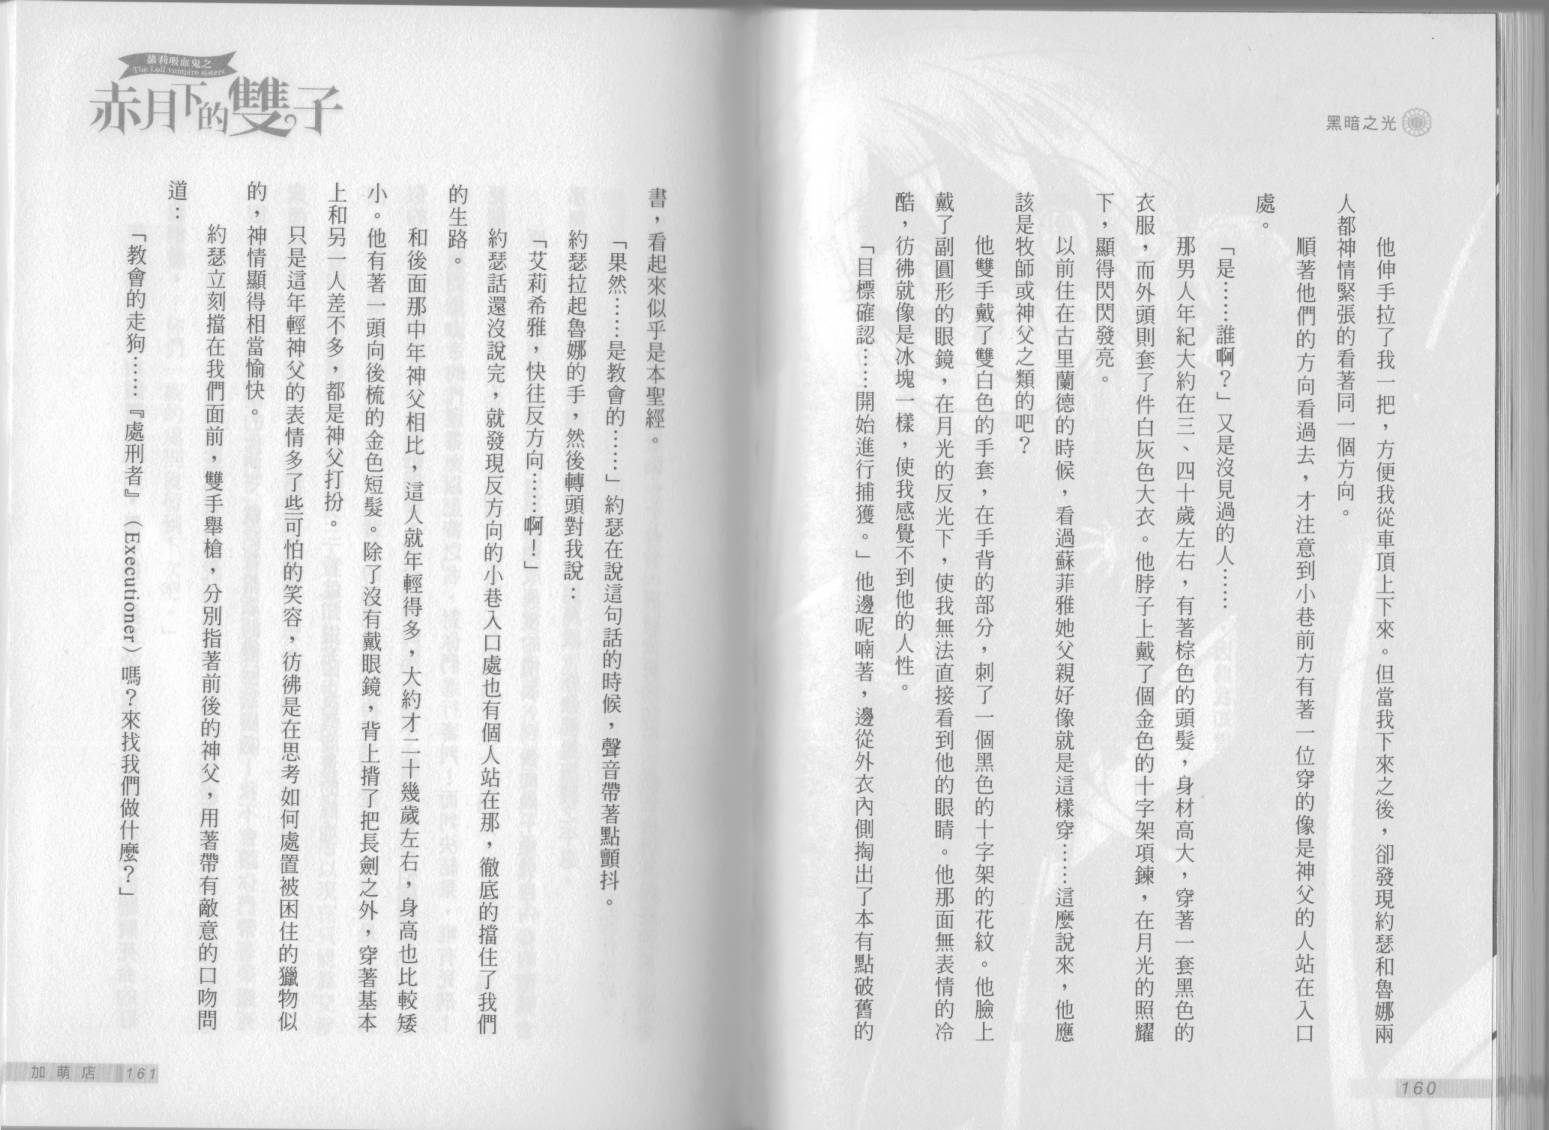 黑暗之光
他伸手拉了我一把，方便我從車頂上下來。但當我下來之後，卻發現約瑟和魯娜兩
人都神情緊張的看著同一個方向。
順著他們的方向看過去，才注意到小巷前方有著一位穿的像是神父的人站在入口
處。
「是……誰啊？」又是沒見過的人……
那男人年紀大約在三、四十歲左右，有著棕色的頭髮，身材高大，穿著一套黑色的
衣服，而外頭則套了件白灰色大衣。他脖子上戴了個金色的十字架項鍊，在月光的照耀
下，顯得閃閃發亮。
以前住在古里蘭德的時候，看過蘇菲雅她父親好像就是這樣穿……這麼說來，他應
該是牧師或神父之類的吧？
他雙手戴了雙白色的手套，在手背的部分，刺了一個黑色的十字架的花紋。他臉上
戴了副圓形的眼鏡，在月光的反光下，使我無法直接看到他的眼睛。他那面無表情的冷
酷，彷彿就像是冰塊一樣，使我感覺不到他的人性。
「目標確認……開始進行捕獲。」他邊呢喃著，邊從外衣內側掏出了本有點破舊的
160
蘿莉吸血鬼之
The Loli vampire sisters
赤月下的雙子
書，看起來似乎是本聖經。
「果然……是教會的……」約瑟在說這句話的時候，聲音帶著點顫抖。
約瑟拉起魯娜的手，然後轉頭對我說：
「艾莉希雅，快往反方向……啊！」
約瑟話還沒說完，就發現反方向的小巷入口處也有個人站在那，徹底的擋住了我們
的生路。
和後面那中年神父相比，這人就年輕得多，大約才二十幾歲左右，身高也比較矮
小。他有著一頭向後梳的金色短髮。除了沒有戴眼鏡，背上揹了把長劍之外，穿著基本
上和另一人差不多，都是神父打扮。
只是這年輕神父的表情多了些可怕的笑容，彷彿是在思考如何處置被困住的獵物似
的，神情顯得相當愉快。
約瑟立刻擋在我們面前，雙手舉槍，分別指著前後的神父，用著帶有敵意的口吻問
道：
「教會的走狗……『處刑者』（Executioner）嗎？來找我們做什麼？」
加萌店 161